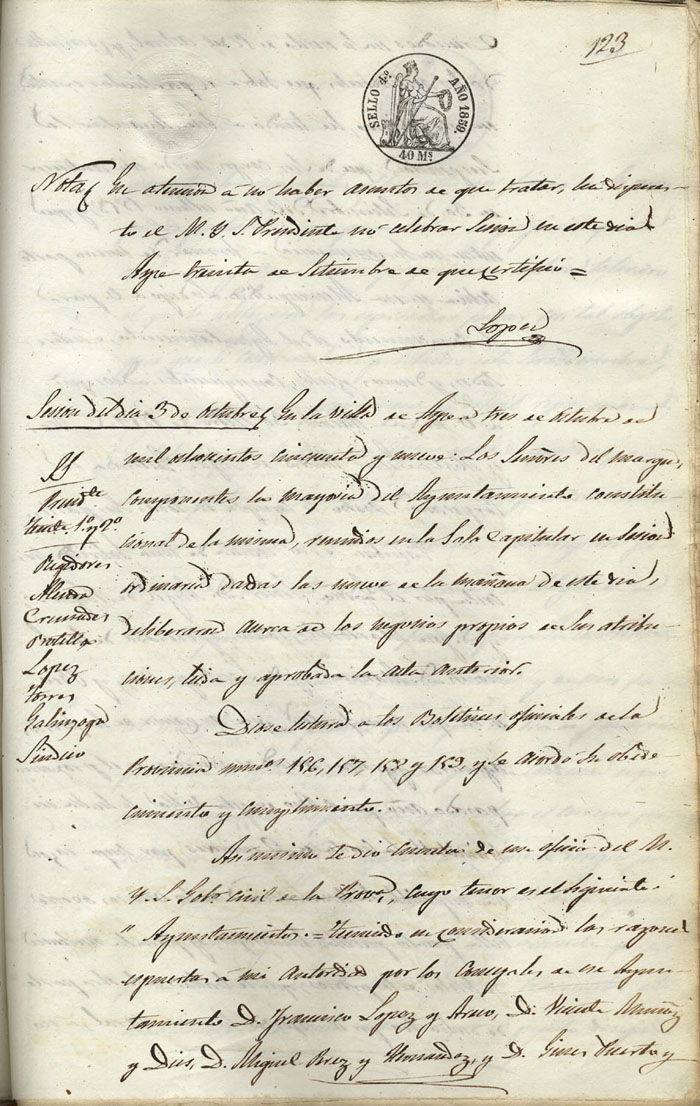 123
SELLO 4.º AÑO 1859.
40 Ms.
Nota En atencion á no haber asuntos de que tratar, ha dispues-
to el M. Y. S. Presidente no celebrar Sesion en este dia
Aspe treinta de Setiembre de que certifico =
Lopez
Sesion del dia 3 de Octubre En la villa de Aspe a tres de Octubre de
mil ochocientos cincuenta y nueve: Los Señores del margen,
componentes la mayoria del Ayuntamiento constitu-
cional de la misma, reunidos en la Sala Capitular en sesion
ordinaria dadas las nueve de la mañana de este dia,
deliberaron acerca de los negocios propios de sus atribu-
ciones, leida y aprobada la acta anterior.
SS
Presidte
Tente 1.º y 2.º
Regidores
Almodo
Cremades
Botella
Lopez
Torres
Galinzoga
Sindico
Diose lectura a los Boletines oficiales de la
Provincia numos 156, 157, 158 y 159, y se acordó su obede-
cimiento y cumplimiento.
Asi mismo se dio cuenta de un oficio del M.
Y. S. Gobr Civil de la Prova, cuyo tenor es el siguiente:
" Ayuntamientos. = Teniendo en consideracion las razones
espuestas á mi autoridad por los Concejales de ese Ayun-
tamiento D. Francisco Lopez y Arco, D. Vicente Muñoz
y Dies, D. Miguel Perez y Hernandez, y D. Gines Puerto y